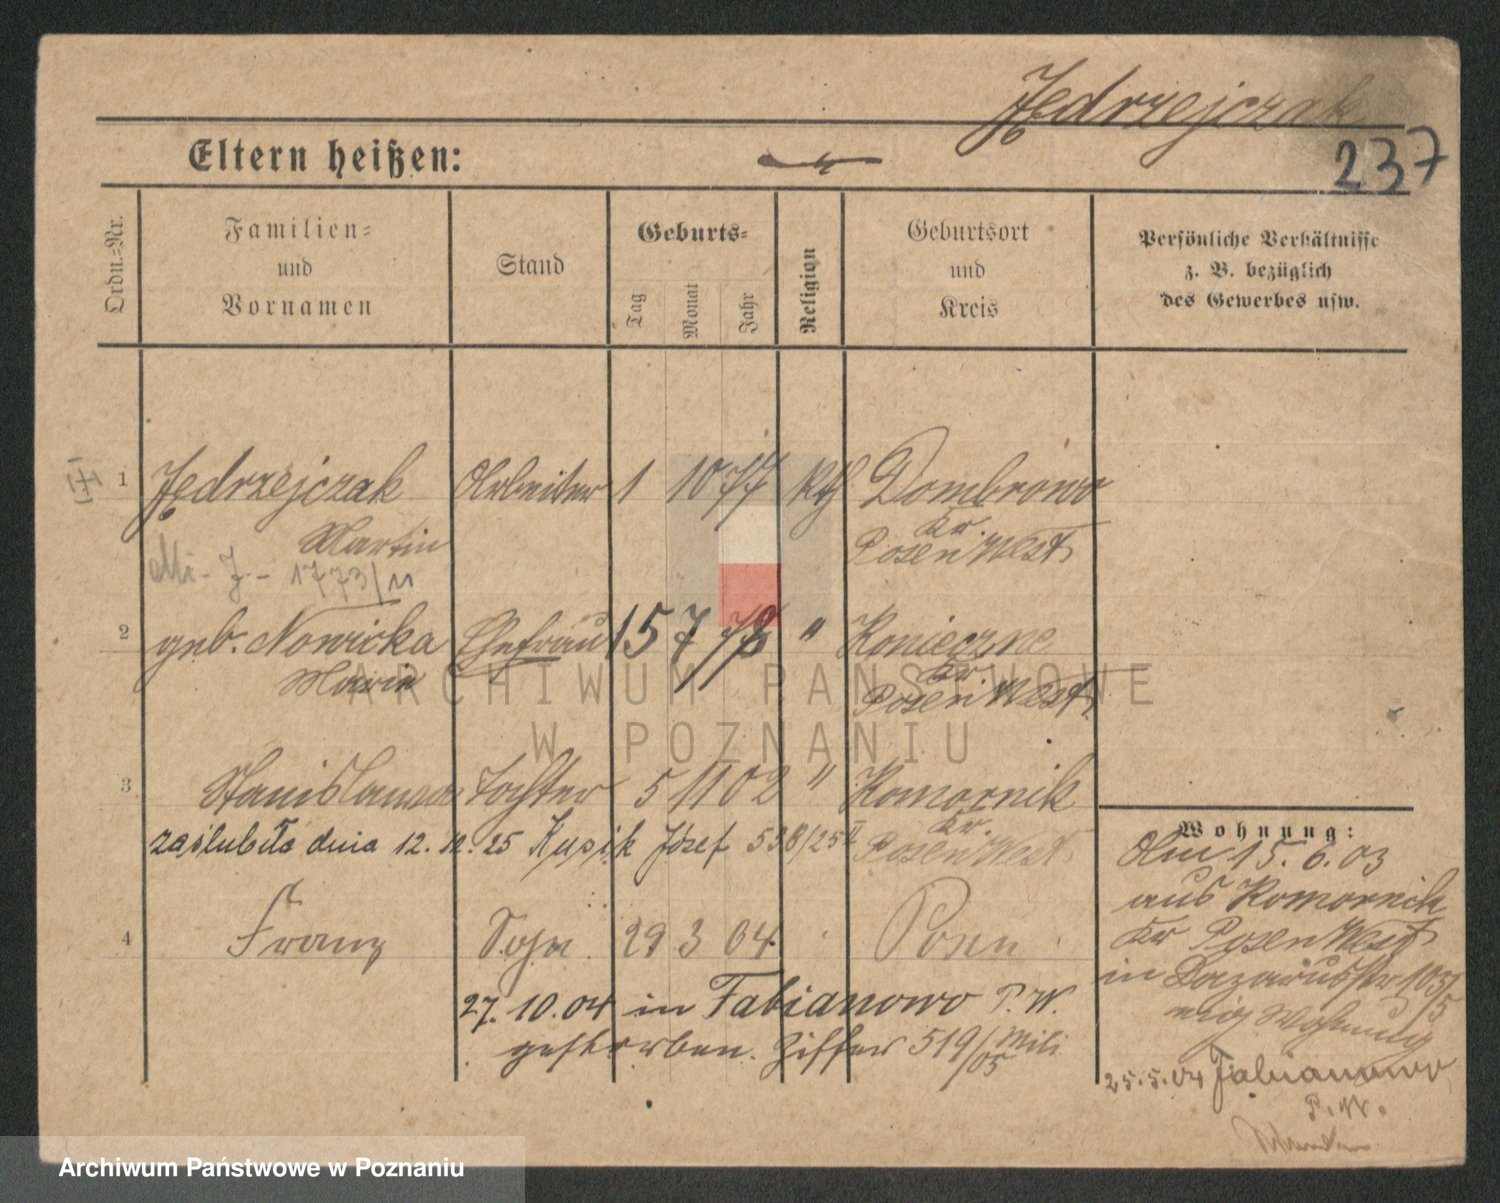 Jędrzejczak
237
Eltern heißen:
Ordn.-Nr.
Familien-
und
Vornamen
Stand
Geburts-
Tag
Monat
Jahr
Religion
Geburtsort
und
Kreis
Persönliche Verhältnisse
z. B. bezüglich
des Gewerbes usw.
1 Jędrzejczak Arbeiter 1 10 77 kth Dombrowo
Martin Kr.
Posen West
J - 1773/11
2 geb. Nowicka Ehefrau 15 7 78 " Konieczne
Marie Kr.
Posen West
3 Stanislawa Tochter 5 11 02 " Komornik
Kr.
zaślubiła dnia 12. 12. 25 Kusik Józef 538/25 II Posen West
4 Franz Sohn 29 3 04 Posen
27. 10. 04 in Fabianowo P. W.
gestorben. Ziffer 519/05 Mili
Wohnung:
Am 15. 6. 03
aus Komornik
Kr Posen West
in Lazarusstr 103/5
Wohnung
25.5.04 Fabianowo
P. W.
ARCHIWUM PAŃSTWOWE
W POZNANIU
Archiwum Państwowe w Poznaniu